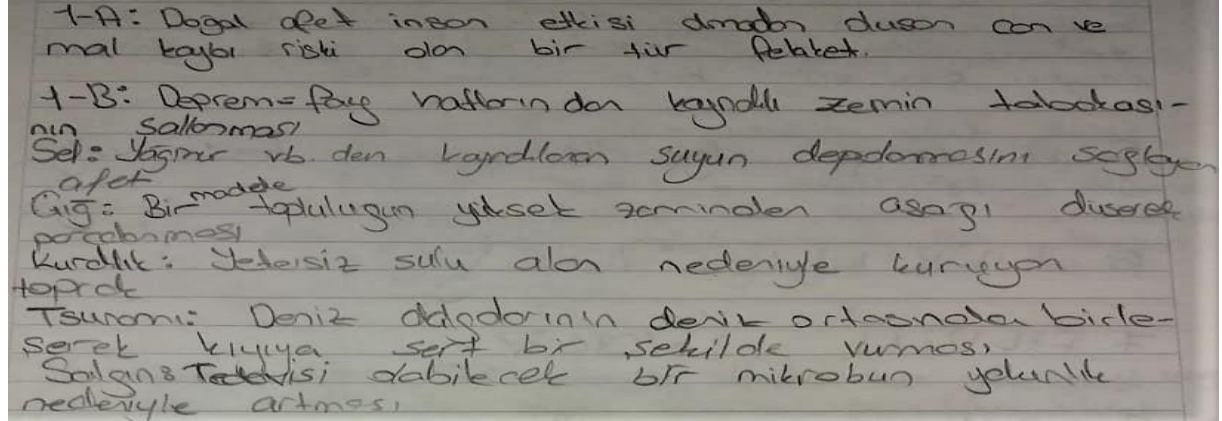 1-A: Dogal afet insan etkisi olmadan olusan can ve
mal kaybı riski olan bir tür felaket.
1-B: Deprem= fay hatlarından kaynaklı zemin tabakası-
nın sallanması
Sel= Yağmur vb. den kaynaklanan suyun depolanmasını sağlayan
afet
Çığ= Bir madde topluluğun yüksek zeminden asagı düserek
parçalanması
Kuraklık: Yetersiz sulu alan nedeniyle kuruyan
toprak
Tsunami: Deniz dalgalarının deniz ortasında birle-
serek kıyıya sert bir sekilde vurması
Salgın: Tedavisi olabilecek bir mikrobun yakınlık
nedeniyle artması